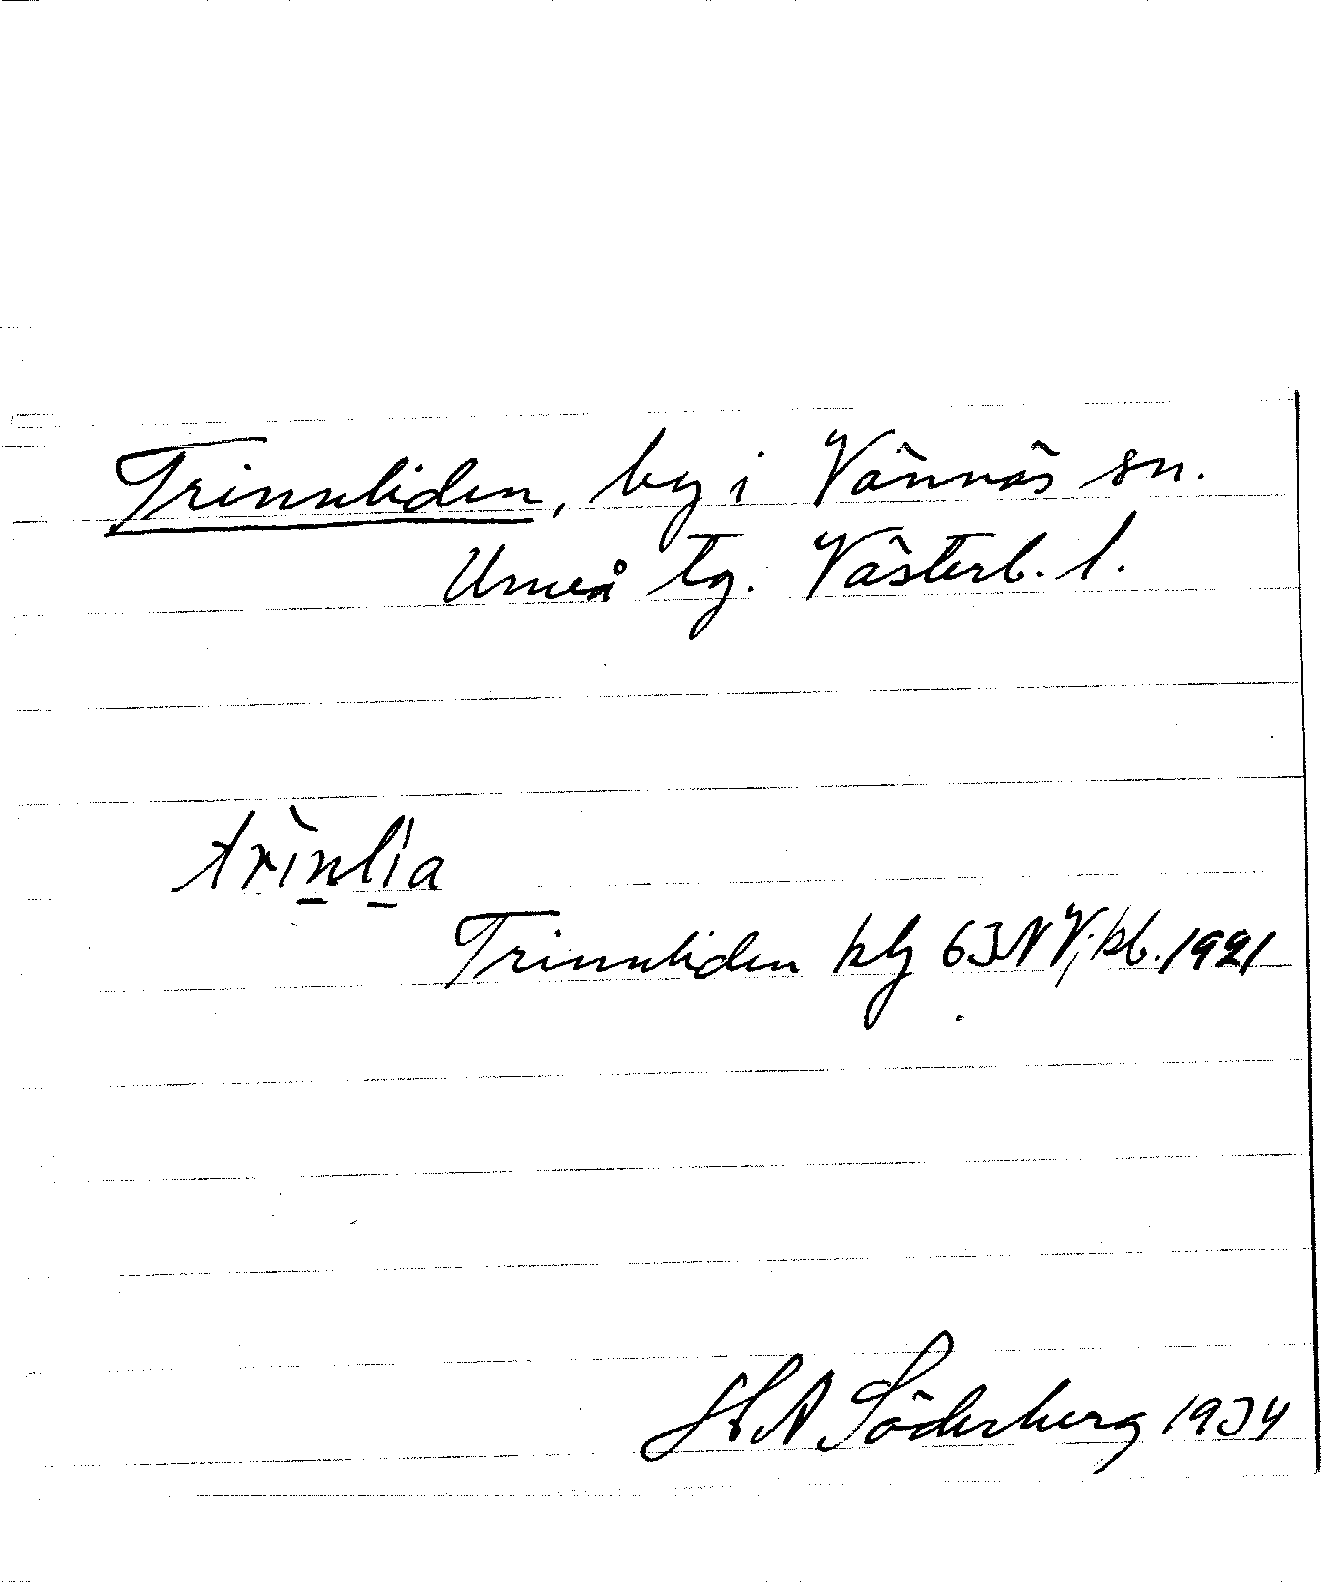 Trinnliden, by i Vännäs sn.
Umeå tg. Västerb. l.
trìnlìa
Trinnliden kbl 63NV; kb. 1921
H A Söderberg 1934